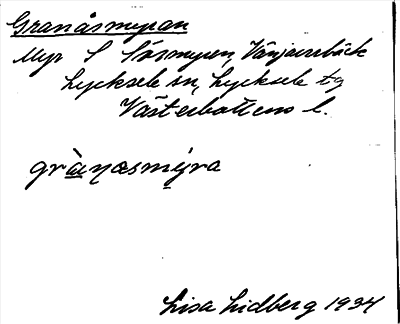 Granåsmyran
Myr S Såsmyren, Vänjaurbäck
Lycksele sn, Lycksele tg
Västerbottens l.
Lisa Lidberg 1934